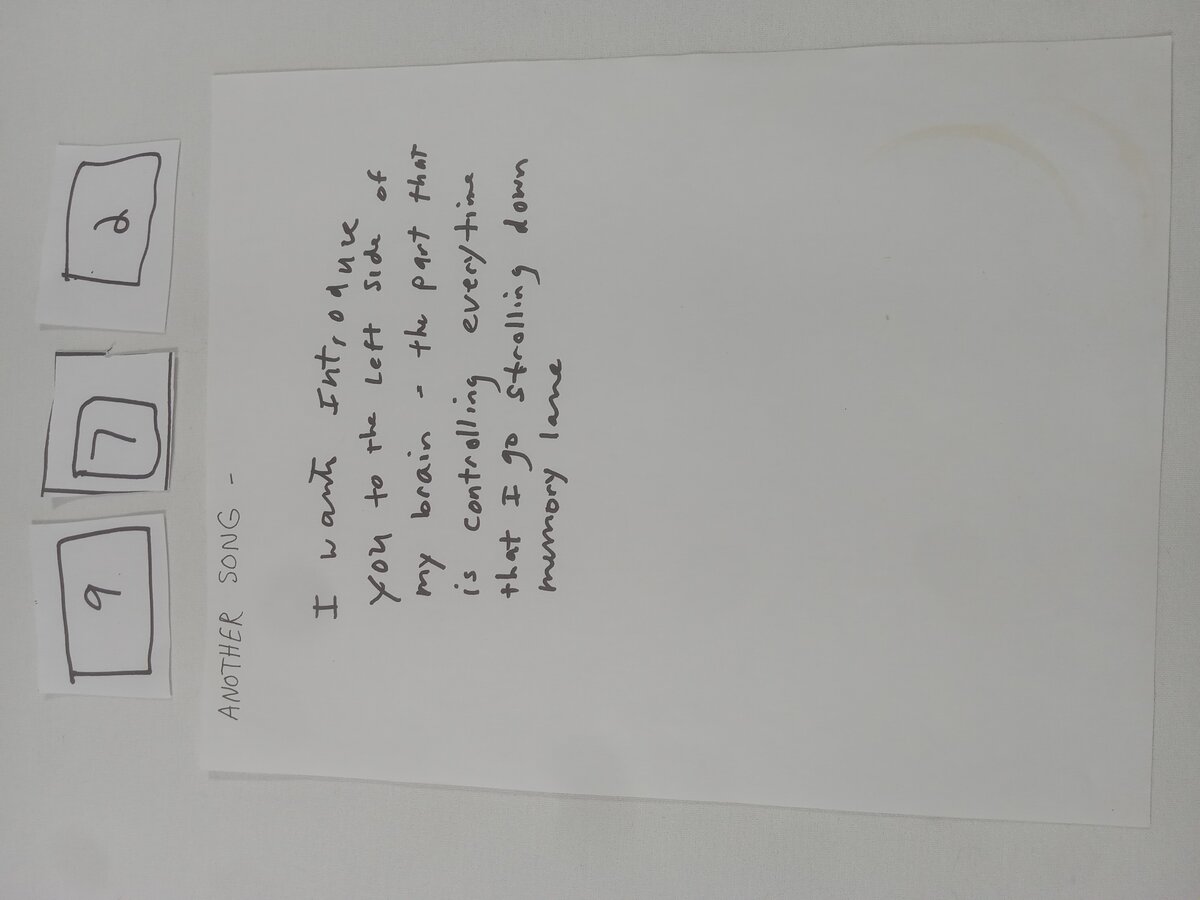 9 7 2
ANOTHER SONG -
I want Introduce
you to the Left side of
my brain - the part that
is controlling everytime
that I go strolling down
memory lane